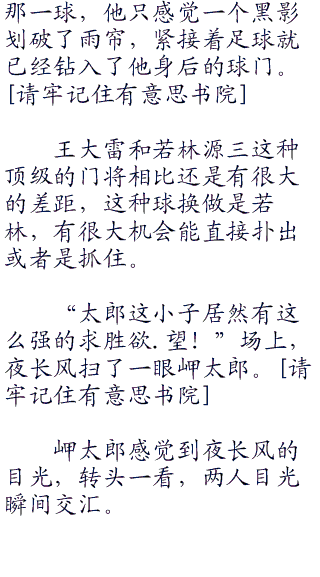 那一球，他只感觉一个黑影
划破了雨帘，紧接着足球就
已经钻入了他身后的球门。
[请牢记住有意思书院]
王大雷和若林源三这种
顶级的门将相比还是有很大
的差距，这种球换做是若
林，有很大机会能直接扑出
或者是抓住。
“太郎这小子居然有这
么强的求胜欲.望！”场上，
夜长风扫了一眼岬太郎。[请
牢记住有意思书院]
岬太郎感觉到夜长风的
目光，转头一看，两人目光
瞬间交汇。